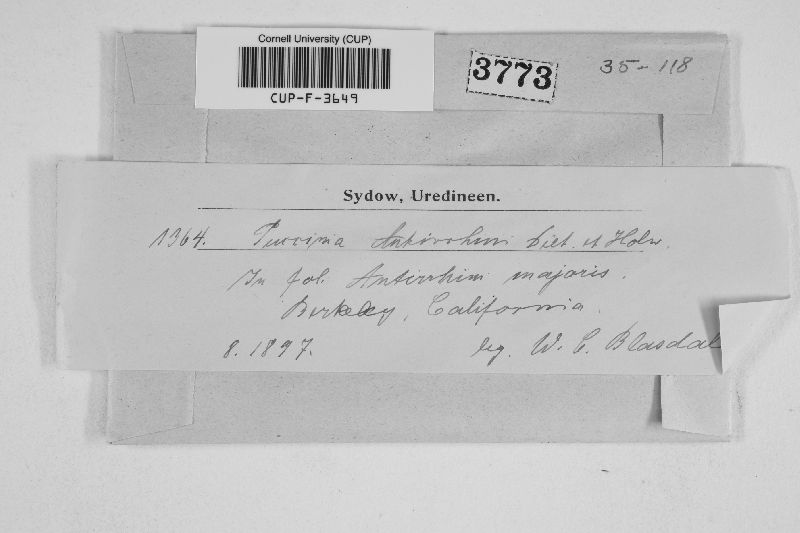 Cornell University (CUP)
CUP-F-3649
3773
35-118
Sydow, Uredineen.
1364. Puccinia Antirrhini Diet. et Holw.
In fol. Antirrhini majoris.
Berkeley, California.
8. 1897. leg. W. C. Blasdal